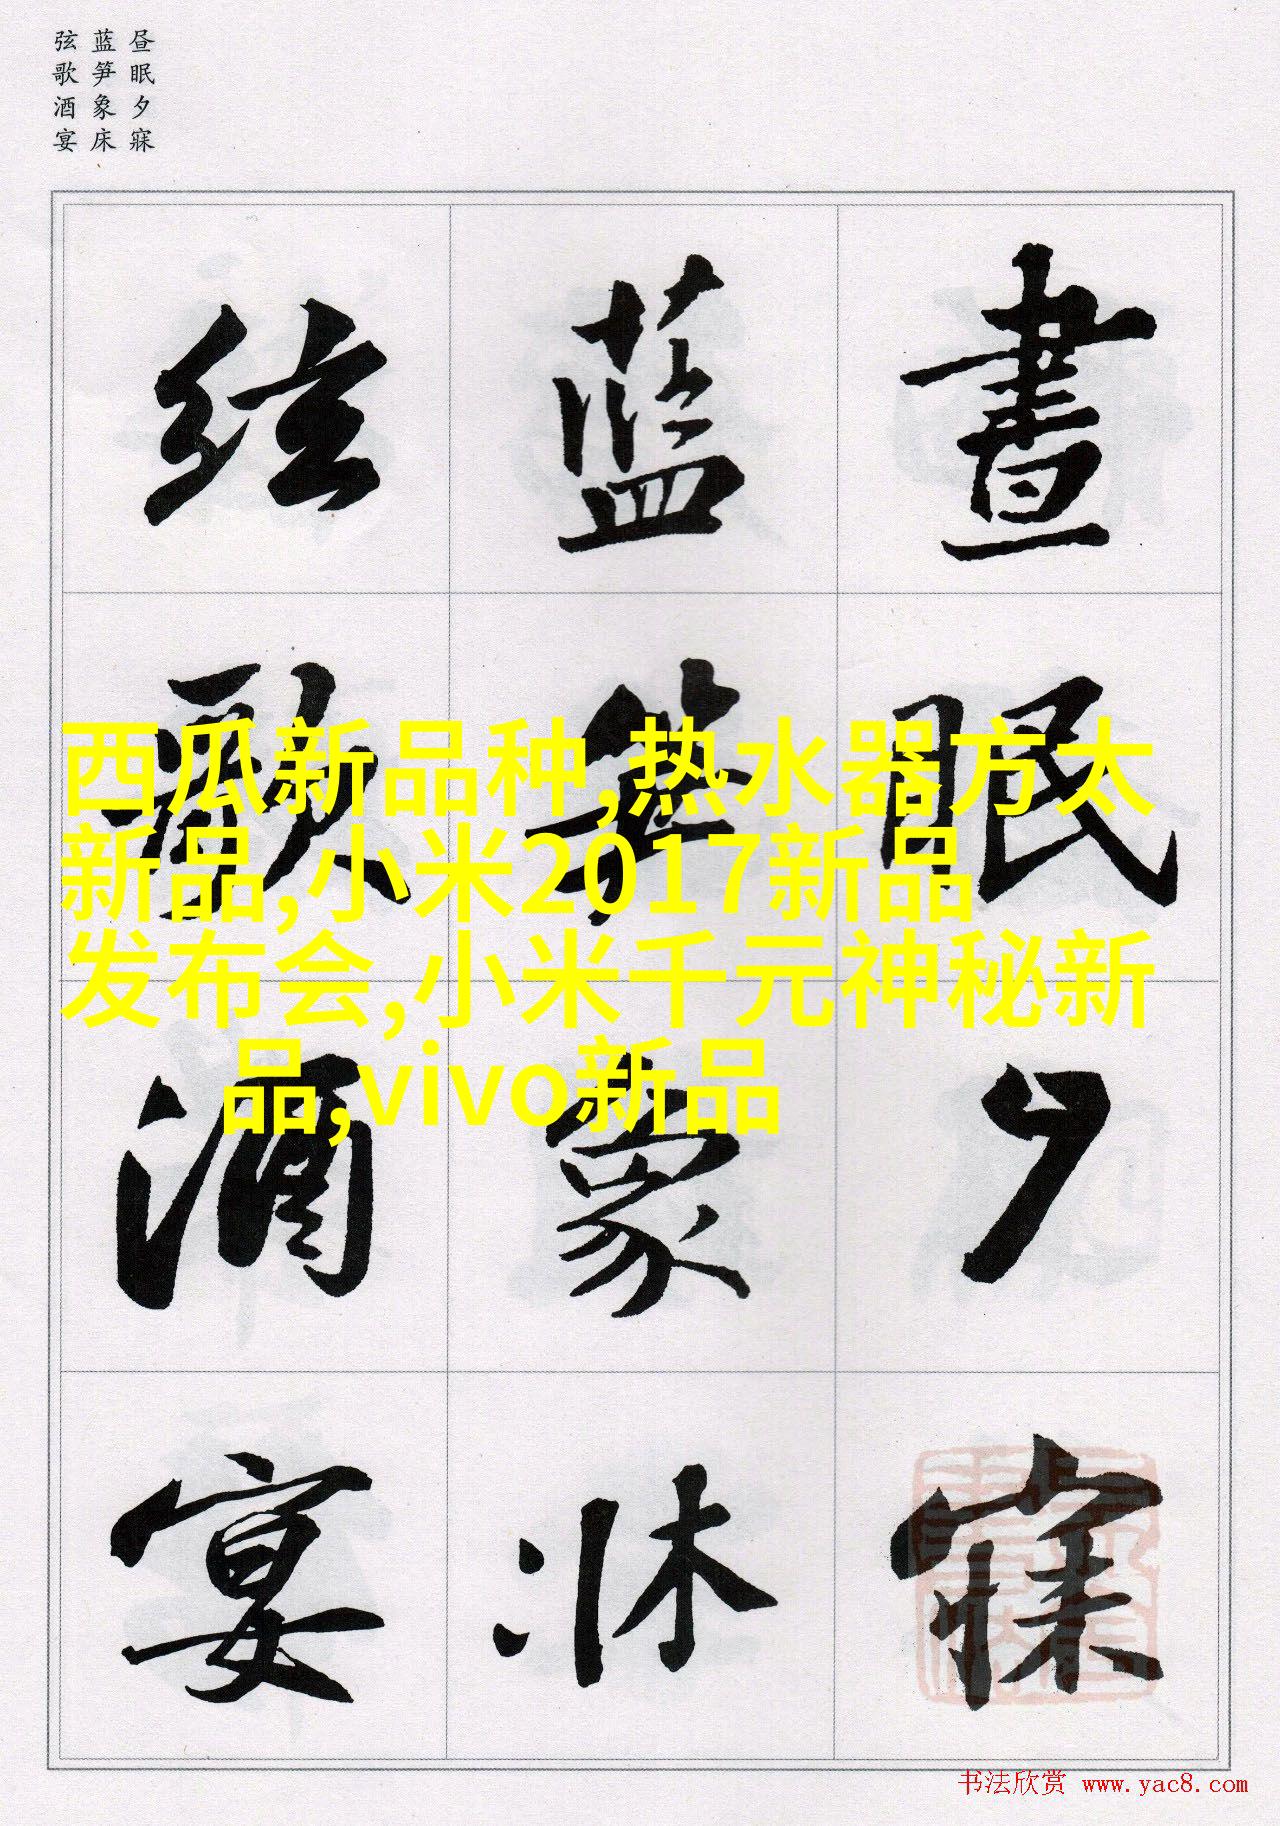 昼眠夕寐
蓝笋象床
弦歌酒宴
晝眠夕寐
藍笋象牀
絃歌酒宴
西瓜新品种,热水器方太
新品,小米2017新品
发布会,小米千元神秘新
品,vivo新品
书法欣赏 www.yac8.com